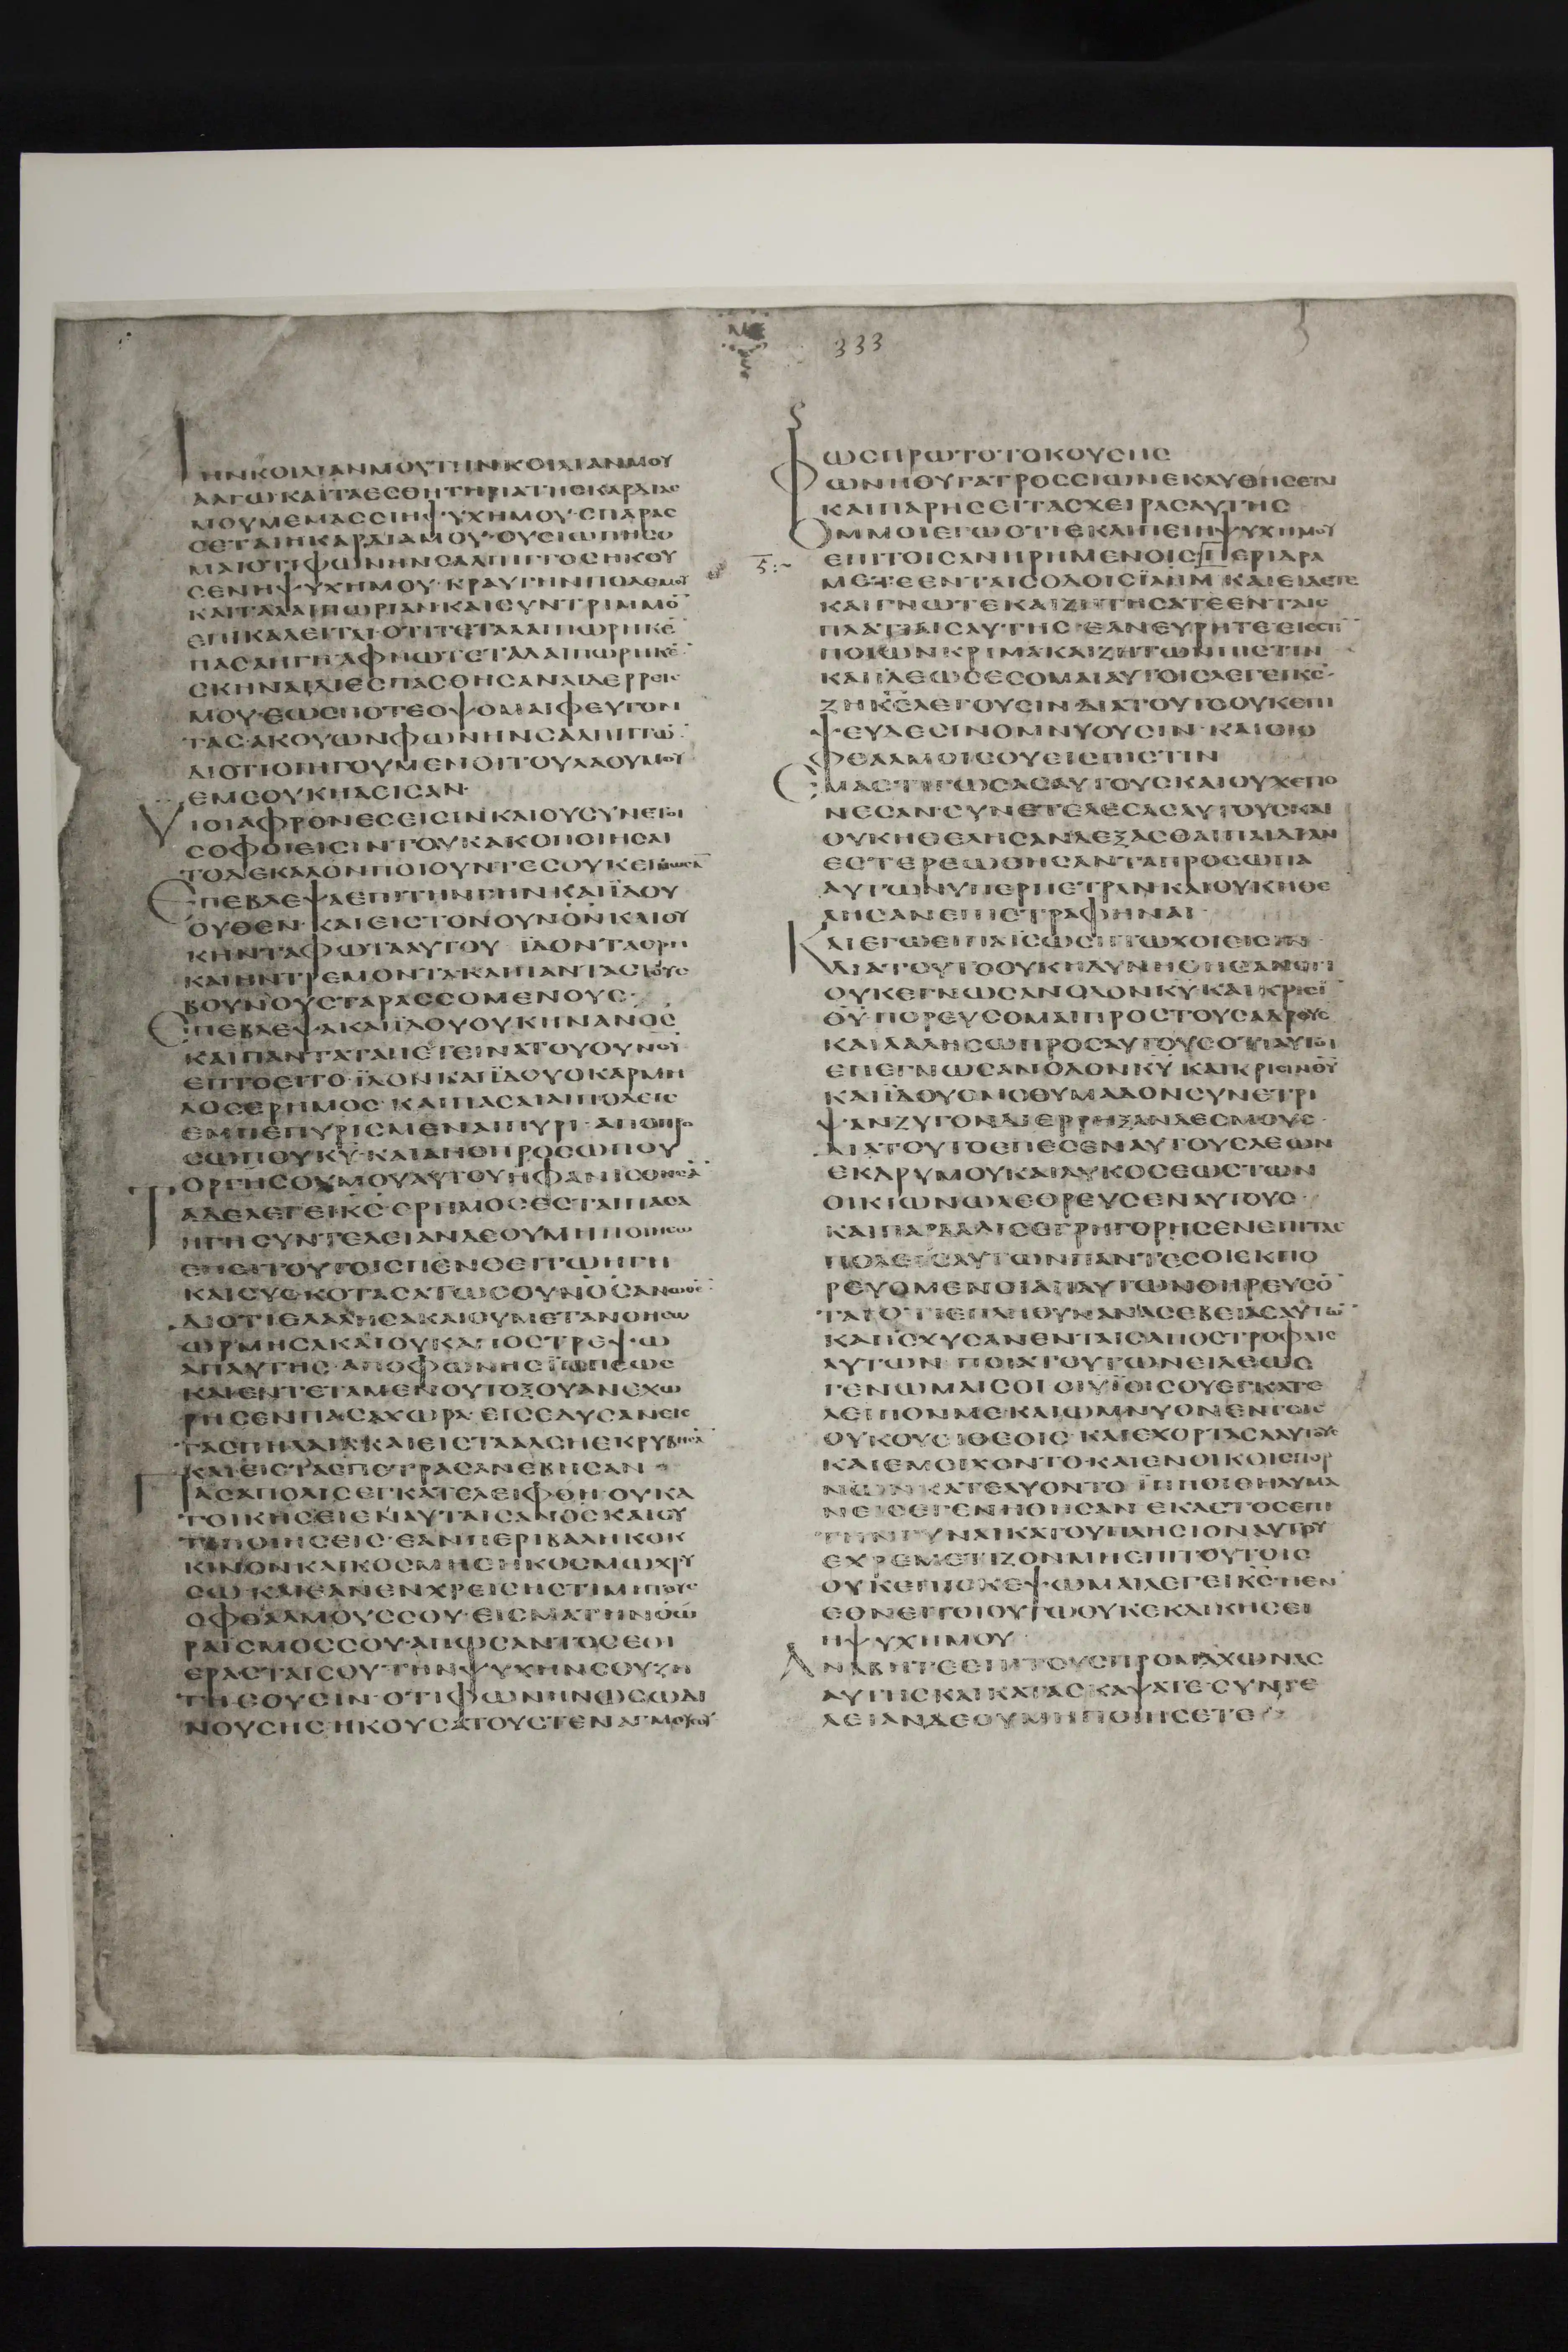 333
ΤΗΝΚΟΙΛΙΑΝΜΟΥΤΗΝΚΟΙΛΙΑΝΜΟΥ
ΑΛΓΩ·ΚΑΙΤΑΕΣΘΗΤΗΡΙΑΤΗΣΚΑΡΔΙΑΣ
ΜΟΥΜΕΜΑΣΣΙΗΨΥΧΗΜΟΥ·ΣΠΑΡΑΣ
ΣΕΤΑΙΗΚΑΡΔΙΑΜΟΥ·ΟΥΣΙΩΠΗΣΟ
ΜΑΙΟΤΙΦΩΝΗΝΣΑΛΠΙΓΓΟΣΗΚΟΥ
ΣΕΝΗΨΥΧΗΜΟΥ·ΚΡΑΥΓΗΝΠΟΛΕΜΟΥ
ΚΑΙΤΑΛΑΙΠΩΡΙΑΝΚΑΙΣΥΝΤΡΙΜΜΟ̄
ΕΠΙΚΑΛΕΙΤΑΙ·ΟΤΙΤΕΤΑΛΑΙΠΩΡΗΚΕ̄
ΠΑΣΑΗΓΗ·ΑΦΝΩΤΕΤΑΛΑΙΠΩΡΗΚΕ̄
ΣΚΗΝΑΙΔΙΕΣΠΑΣΘΗΣΑΝΑΙΔΕΡΡΕΙΣ
ΜΟΥ·ΕΩΣΠΟΤΕΟΨΟΜΑΙΦΕΥΓΟΝ
ΤΑΣ·ΑΚΟΥΩΝΦΩΝΗΝΣΑΛΠΙΓΓΩ̄
ΔΙΟΤΙΟΙΗΓΟΥΜΕΝΟΙΤΟΥΛΑΟΥΜΟΥ
ΕΜΕΟΥΚΗΔΙΣΑΝ·
ΥΙΟΙΑΦΡΟΝΕΣΕΙΣΙΝΚΑΙΟΥΣΥΝΕΤΟΙ
ΣΟΦΟΙΕΙΣΙΝΤΟΥΚΑΚΟΠΟΙΗΣΑΙ
ΤΟΔΕΚΑΛΟΝΠΟΙΟΥΝΤΕΣΟΥΚΕΠΕΓΝΩΣᾹ
ΕΠΕΒΛΕΨΑΕΠΙΤΗΝΓΗΝ·ΚΑΙΪΔΟΥ
ΟΥΘΕΝ·ΚΑΙΕΙΣΤΟΝΟΥΝΟΝ̄ΚΑΙΟΥ
ΚΗΝΤΑΦΩΤΑΑΥΤΟΥ ΪΔΟΝΤΑΟΡΗ
ΚΑΙΗΝΤΡΕΜΟΝΤΑΚΑΙΠΑΝΤΑΣΤΟΥΣ
ΒΟΥΝΟΥΣΤΑΡΑΣΣΟΜΕΝΟΥΣ·
ΕΠΕΒΛΕΨΑΚΑΙΪΔΟΥΟΥΚΗΝΑΝΟΣ̄
ΚΑΙΠΑΝΤΑΤΑΠΕΤΕΙΝΑΤΟΥΟΥΝΟῩ
ΕΠΤΟΕΙΤΟ·ΪΔΟΝΚΑΙΪΔΟΥΟΚΑΡΜΗ
ΛΟΣΕΡΗΜΟΣ·ΚΑΙΠΑΣΑΙΑΙΠΟΛΕΙΣ
ΕΜΠΕΠΥΡΙΣΜΕΝΑΙΠΥΡΙ·ΑΠΟΠΡΟ
ΣΩΠΟΥΚῩ·ΚΑΙΑΠΟΠΡΟΣΩΠΟΥ
ΟΡΓΗΣΘΥΜΟΥΑΥΤΟΥΗΦΑΝΙΣΘΗΣᾹ
ΤΑΔΕΛΕΓΕΙΚΣ̄·ΕΡΗΜΟΣΕΣΤΑΙΠΑΣΑ
ΗΓΗΣΥΝΤΕΛΕΙΑΝΔΕΟΥΜΗΠΟΙΗΣΩ
ΕΠΕΙΤΟΥΤΟΙΣΠΕΝΘΕΙΤΩΗΓΗ
ΚΑΙΣΥΣΚΟΤΑΣΑΤΩΣΟΥΝΟΣ̄ΑΝΩΘΕ̄
ΔΙΟΤΙΕΛΑΛΗΣΑΚΑΙΟΥΜΕΤΑΝΟΗΣΩ
ΩΡΜΗΣΑΚΑΙΟΥΚΑΠΟΣΤΡΕΨΩ
ΑΠΑΥΤΗΣ·ΑΠΟΦΩΝΗΣΪΠΠΕΩΣ
ΚΑΙΕΝΤΕΤΑΜΕΝΟΥΤΟΞΟΥΑΝΕΧΩ
ΡΗΣΕΝΠΑΣΑΧΩΡΑ·ΕΙΣΕΔΥΣΑΝΕΙΣ
ΤΑΣΠΗΛΑΙΑΚΑΙΕΙΣΤΑΑΛΣΗΕΚΡΥΒΗΣᾹ
ΚΑΙΕΙΣΤΑΣΠΕΤΡΑΣΑΝΕΒΗΣΑΝ
ΠΑΣΑΠΟΛΙΣΕΓΚΑΤΕΛΕΙΦΘΗ·ΟΥΚΑ
ΤΟΙΚΗΣΕΙΕΝΑΥΤΑΙΣΑΝΟΣ̄ΚΑΙΣΥ
ΤΙΠΟΙΗΣΕΙΣ·ΕΑΝΠΕΡΙΒΑΛΗΚΟΚ
ΚΙΝΟΝΚΑΙΚΟΣΜΗΣΗΚΟΣΜΩΧΡΥ
ΣΩ·ΚΑΙΕΑΝΕΝΧΡΕΙΣΗΣΤΙΜΗΤΟΥΣ
ΟΦΘΑΛΜΟΥΣΣΟΥ·ΕΙΣΜΑΤΗΝΟΩ
ΡΑΙΣΜΟΣΣΟΥ·ΑΠΩΣΑΝΤΟΣΕΟΙ
ΕΡΑΣΤΑΙΣΟΥ·ΤΗΝΨΥΧΗΝΣΟΥΖΗ
ΤΗΣΟΥΣΙΝ·ΟΤΙΦΩΝΗΝΩΣΩΔΙ
ΝΟΥΣΗΣΗΚΟΥΣΑΤΟΥΣΤΕΝΑΓΜΟΥΣΟΥ
ΩΣΠΡΩΤΟΤΟΚΟΥΣΗΣ
ΦΩΝΗΘΥΓΑΤΡΟΣΣΙΩΝΕΚΛΥΘΗΣΕΤΑΙ
ΚΑΙΠΑΡΗΣΕΙΤΑΣΧΕΙΡΑΣΑΥΤΗΣ
ΟΜΜΟΙΕΓΩΟΤΙΕΚΛΙΠΕΙΗΨΥΧΗΜΟΥ
ΕΠΙΤΟΙΣΑΝΗΡΗΜΕΝΟΙΣΠΕΡΙΔΡΑ
ΜΕΤΕΕΝΤΑΙΣΟΔΟΙΣΪΛΗΜ̄ΚΑΙΕΙΔΕΤΕ
ΚΑΙΓΝΩΤΕΚΑΙΖΗΤΗΣΑΤΕΕΝΤΑΙΣ
ΠΛΑΤΙΑΙΣΑΥΤΗΣ·ΕΑΝΕΥΡΗΤΕ·ΕΙΕΣΤῙ
ΠΟΙΩΝΚΡΙΜΑΚΑΙΖΗΤΩΝΠΙΣΤΙΝ
ΚΑΙΪΛΕΩΣΕΣΟΜΑΙΑΥΤΟΙΣΛΕΓΕΙΚΣ̄·
ΖΗΚΣ̄ΛΕΓΟΥΣΙΝ·ΔΙΑΤΟΥΤΟΟΥΚΕΠΙ
ΨΕΥΔΕΣΙΝΟΜΝΥΟΥΣΙΝ·ΚΑΙΟΙΟ
ΦΘΑΛΜΟΙΣΟΥΕΙΣΠΙΣΤΙΝ
ΕΜΑΣΤΙΓΩΣΑΣΑΥΤΟΥΣΚΑΙΟΥΧΕΠΟ
ΝΕΣΑΝ·ΣΥΝΕΤΕΛΕΣΑΣΑΥΤΟΥΣΚΑΙ
ΟΥΚΗΘΕΛΗΣΑΝΔΕΞΑΣΘΑΙΠΑΙΔΙΑΝ
ΕΣΤΕΡΕΩΘΗΣΑΝΤΑΠΡΟΣΩΠΑ
ΑΥΤΩΝΥΠΕΡΠΕΤΡΑΝ·ΚΑΙΟΥΚΗΘΕ
ΛΗΣΑΝΕΠΙΣΤΡΑΦΗΝΑΙ
ΚΑΙΕΓΩΕΙΠΑΪΣΩΣΠΤΩΧΟΙΕΙΣΙΝ·
ΔΙΑΤΟΥΤΟΟΥΚΗΔΥΝΗΘΗΣΑΝΟΤΙ
ΟΥΚΕΓΝΩΣΑΝΟΔΟΝΚῩ·ΚΑΙΚΡΙΣῙ
ΘῩ·ΠΟΡΕΥΣΟΜΑΙΠΡΟΣΤΟΥΣΑΔΡΟΥΣ
ΚΑΙΛΑΛΗΣΩΠΡΟΣΑΥΤΟΥΣΟΤΙΑΥΤΟΙ
ΕΠΕΓΝΩΣΑΝΟΔΟΝΚῩ·ΚΑΙΚΡΙΣΙΝΘῩ
ΚΑΙΪΔΟΥΟΜΟΘΥΜΑΔΟΝΣΥΝΕΤΡΙ
ΨΑΝΖΥΓΟΝΔΙΕΡΡΗΞΑΝΔΕΣΜΟΥΣ·
ΔΙΑΤΟΥΤΟΕΠΕΣΕΝΑΥΤΟΥΣΛΕΩΝ
ΕΚΔΡΥΜΟΥΚΑΙΛΥΚΟΣΕΩΣΤΩΝ
ΟΙΚΙΩΝΩΛΕΘΡΕΥΣΕΝΑΥΤΟΥΣ·
ΚΑΙΠΑΡΔΑΛΙΣΕΓΡΗΓΟΡΗΣΕΝΕΠΙΤΑΣ
ΠΟΛΕΙΣΑΥΤΩΝΠΑΝΤΕΣΟΙΕΚΠΟ
ΡΕΥΟΜΕΝΟΙΑΠΑΥΤΩΝΘΗΡΕΥΣΟ̄
ΤΑΙΟΤΙΕΠΛΗΘΥΝΑΝΑΣΕΒΕΙΑΣΑΥΤΩ̄
ΚΑΙΪΣΧΥΣΑΝΕΝΤΑΙΣΑΠΟΣΤΡΟΦΑΙΣ
ΑΥΤΩΝ·ΠΟΙΑΤΟΥΤΩΝΕΙΛΕΩΣ
ΓΕΝΩΜΑΙΣΟΙ·ΟΙΥΪΟΙΣΟΥΕΓΚΑΤΕ
ΛΕΙΠΟΝΜΕ·ΚΑΙΩΜΝΥΟΝΕΝΤΟΙΣ
ΟΥΚΟΥΣΙΘΕΟΙΣ·ΚΑΙΕΧΟΡΤΑΣΑΑΥΤΟΥΣ
ΚΑΙΕΜΟΙΧΟΝΤΟ·ΚΑΙΕΝΟΙΚΟΙΣΠΟΡ
ΝΩΝΚΑΤΕΛΥΟΝΤΟ ΪΠΠΟΙΘΗΛΥΜΑ
ΝΕΙΣΕΓΕΝΗΘΗΣΑΝ ΕΚΑΣΤΟΣΕΠΙ
ΤΗΝΓΥΝΑΙΚΑΤΟΥΠΛΗΣΙΟΝΑΥΤΟΥ
ΕΧΡΕΜΕΤΙΖΟΝΜΗΕΠΙΤΟΥΤΟΙΣ
ΟΥΚΕΠΙΣΚΕΨΩΜΑΙΛΕΓΕΙΚΣ̄·ΗΕΝ
ΕΘΝΕΙΤΟΙΟΥΤΩΟΥΚΕΚΔΙΚΗΣΕΙ
ΗΨΥΧΗΜΟΥ
ΑΝΑΒΗΤΕΕΠΙΤΟΥΣΠΡΟΜΑΧΩΝΑΣ
ΑΥΤΗΣΚΑΙΚΑΤΑΣΚΑΨΑΤΕ·ΣΥΝΤΕ
ΛΕΙΑΝΔΕΟΥΜΗΠΟΙΗΣΕΤΕ